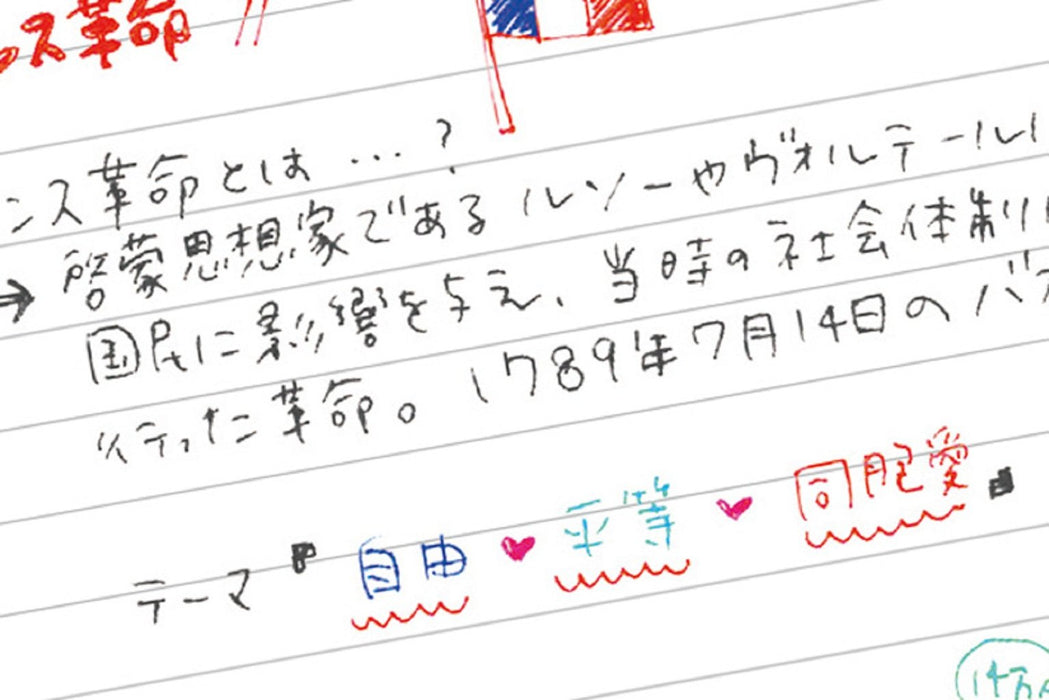 ス革命
ンス革命とは…?
→啓蒙思想家であるルソーやヴォルテール
国民に影響を与え、当時の社会体制
行った革命。1789年7月14日のバ
テーマ『自由♥平等♥同胞愛』